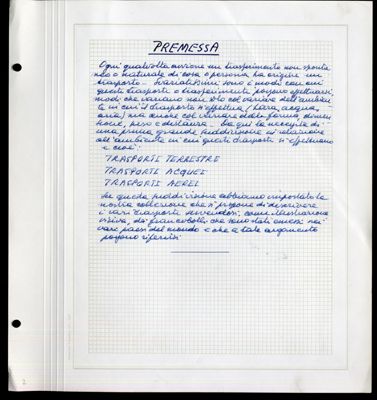 PREMESSA
Ogni qualvolta avviene un trasferimento non sponta
neo o naturale di cosa o persona ha origine un
trasporto. Svariatissimi sono i modi con cui
questi trasporti o trasferimenti possono effettuarsi,
modi che variano non solo col variare dell'ambien
te in cui il trasporto si effettua (terra, acqua,
aria) ma anche col variare della forma, dimen
sione, peso e distanza. Da qui la necessità di
una prima grande suddivisione in relazione
all'ambiente in cui questi trasporti si effettuano
e cioè:
TRASPORTI TERRESTRI
TRASPORTI ACQUEI
TRASPORTI AEREI
Su questa suddivisione abbiamo impostato la
nostra collezione che si propone di descrivere
i vari trasporti servendosi, come illustrazione
visiva, dei francobolli che sono stati emessi nei
vari paesi del mondo e che a tale argomento
possono riferirsi
2